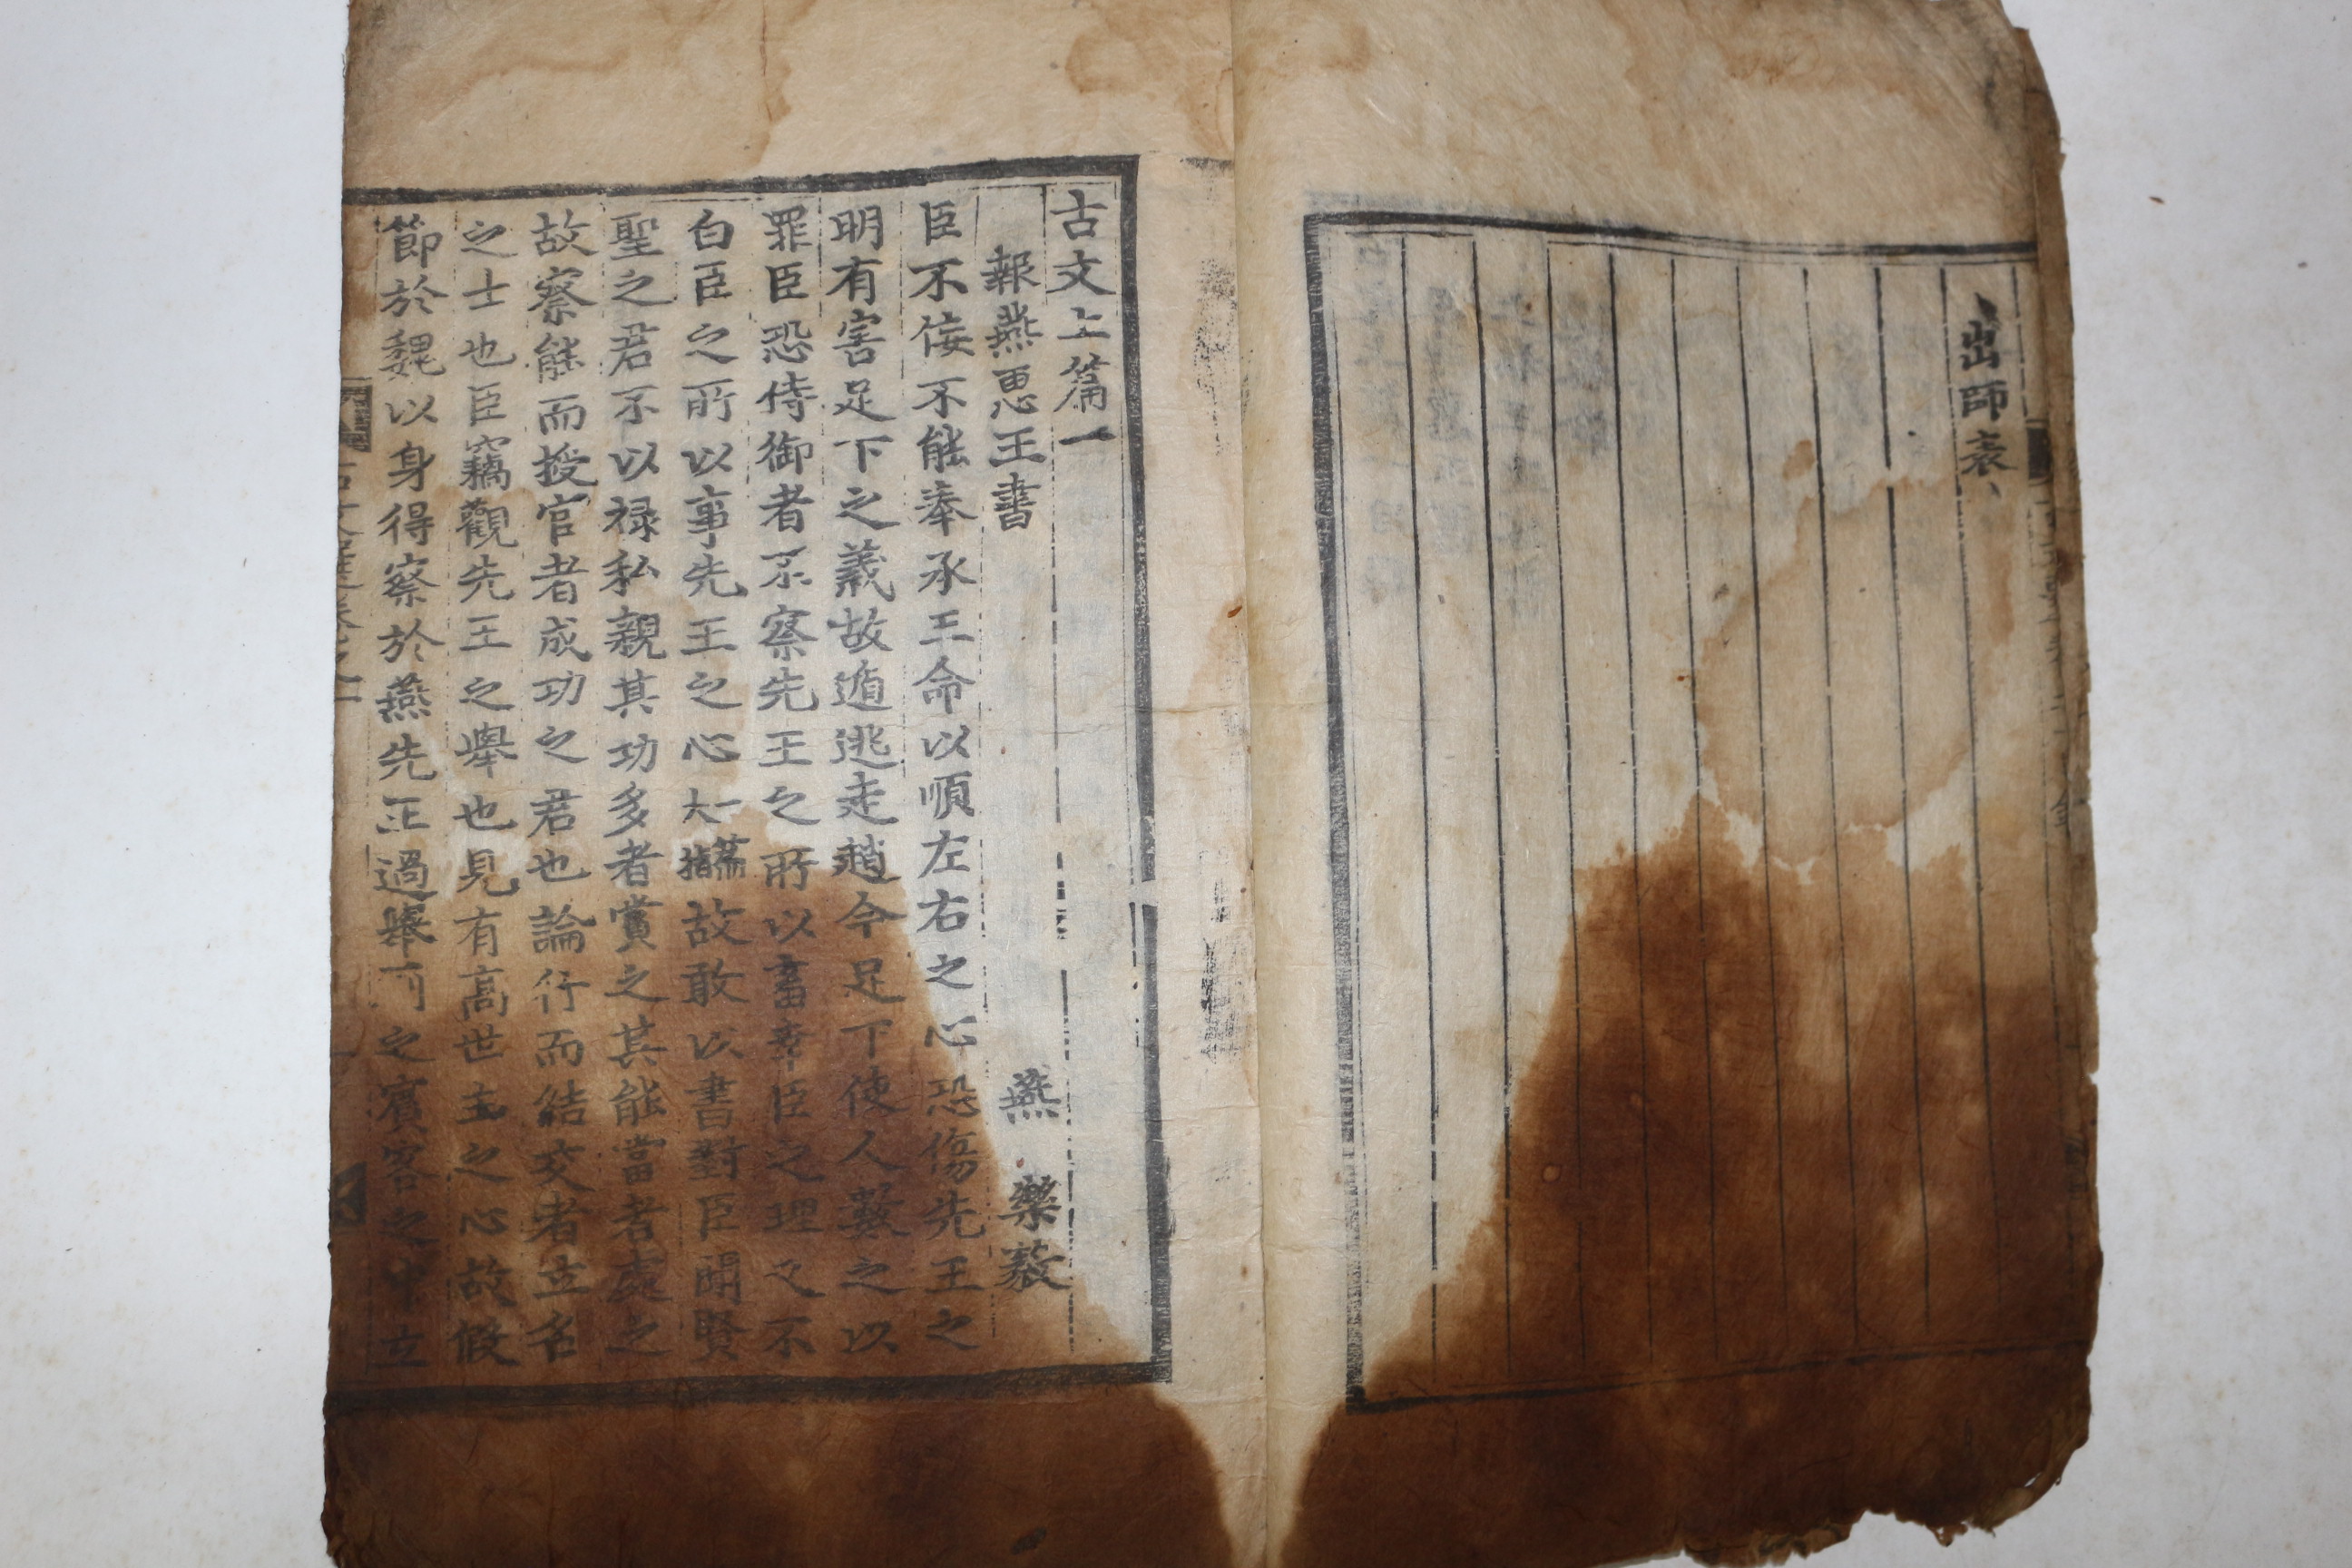 出師表
古文上篇一
報燕惠王書
燕 樂毅
臣不佞不能奉承王命以順左右之心恐傷先王之
明有害足下之義故遁逃走趙今足下使人數之以
罪臣恐侍御者不察先王之所以畜幸臣之理又不
白臣之所以事先王之心故敢以書對臣聞賢
聖之君不以禄私親其功多者賞之其能當者處之
故察能而授官者成功之君也論行而結交者立名
之士也臣竊觀先王之擧也見有高世主之心故假
節於魏以身得察於燕先王過擧 之賓客之中立